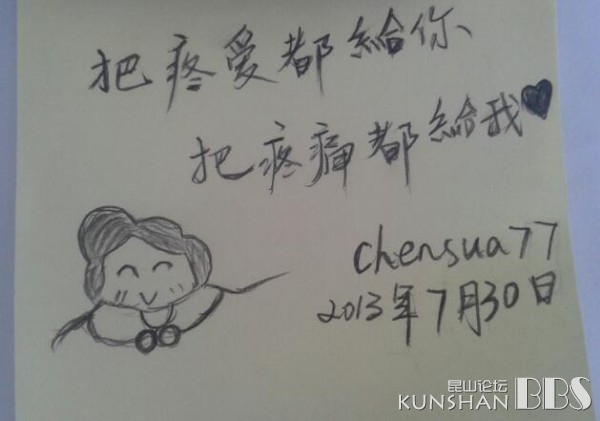 把疼爱都給你
把疼痛都給我
chensua77
2013年7月30日
昆山论坛
KUNSHAN BBS